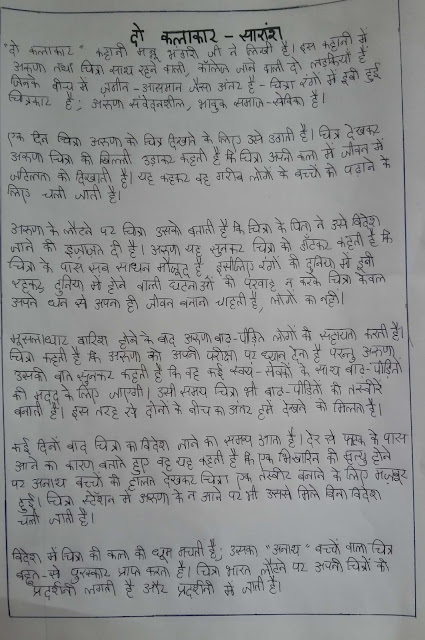 दो कलाकार - सारांश
"दो कलाकार" कहानी मन्नू भंडारी जी ने लिखी है। इस कहानी में
अरूणा तथा चित्रा साथ रहने वाली, कॉलेज जाने वाली दो लड़कियाँ हैं
जिनके बीच में जमीन-आसमान जैसा अंतर है - चित्रा रंगों में डूबी हुई
चित्रकार है; अरूणा संवेदनशील, भावुक समाज-सेविका है।
एक दिन चित्रा अरूणा को चित्र दिखाने के लिए उसे उठाती है। चित्र देखकर
अरूणा चित्रा की खिल्ली उड़ाकर कहती है कि चित्रा अपनी कला में जीवन में
जटिलता को दिखाती है। यह कहकर वह गरीब लोगों के बच्चों को पढ़ाने के
लिए चली जाती है।
अरूणा के लौटने पर चित्रा उसको बताती है कि चित्रा के पिता ने उसे विदेश
जाने की इजाज़त दी है। अरूणा यह सुनकर चित्रा को डाँटकर कहती है कि
चित्रा के पास सब साधन मौजूद है, इसीलिए रंगों की दुनिया में डूबी
रहकर दुनिया में होने वाली घटनाओं की परवाह न करके चित्रा केवल
अपने धन से अपना ही जीवन बनाना चाहती है, लोगों का नहीं।
मूसलाधार बारिश होने के बाद अरूणा बाढ़-पीड़ित लोगों की सहायता करती है।
चित्रा कहती है कि अरूणा को अपनी परीक्षा पर ध्यान देना है परन्तु अरूणा
उसकी बात सुनकर कहती है कि वह कई स्वयं-सेवकों के साथ बाढ़-पीड़ितों
की मदद के लिए जाएगी। उसी समय चित्रा भी बाढ़-पीड़ितों की तस्वीरें
बनाती है। इस तरह से दोनों के बीच का अंतर हमें देखने को मिलता है।
कई दिनों बाद चित्रा का विदेश जाने का समय आता है। देर से के पास
आने का कारण बताते हुए वह यह कहती है कि एक भिखारिन की मृत्यु होने
पर अनाथ बच्चों की हालत देखकर चित्रा एक तस्वीर बनाने के लिए मजबूर
हुई। चित्रा स्टेशन में अरूणा के न आने पर भी उससे मिले बिना विदेश
चली जाती है।
विदेश में चित्रा की कला की धूम मचती है; उसका "अनाथ" बच्चों वाला चित्र
बहुत-से पुरस्कार प्राप्त करता है। चित्रा भारत लौटने पर अपनी चित्रों की
प्रदर्शनी लगाती है और प्रदर्शनी में जाती है।